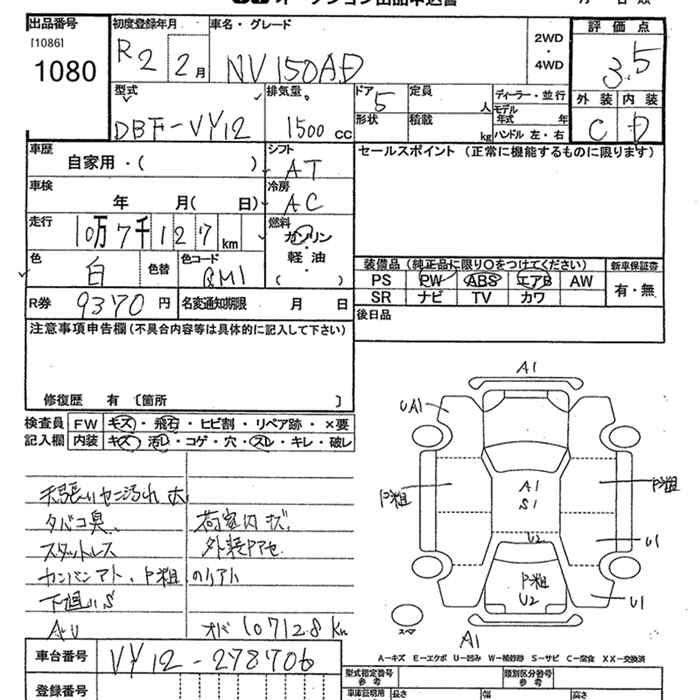 出品番号
[1086]
1080
初度登録年月
R2 2月
車名・グレード
NV150AD
2WD
・
4WD
評価点
3.5
外装 内装
C D
型式
DBF-VY12
排気量
1500 cc
ドア
5
形状
定員
人
積載
kg
ディーラー・並行
モデル
年式 年
ハンドル 左・右
車歴
自家用・( )
シフト
AT
セールスポイント(正常に機能するものに限ります)
車検
年 月( 日)
冷房
AC
走行
10万7千127km
燃料
ガソリン
・
軽油
( )
色
白
色替
色コード
QM1
装備品(純正品に限り○をつけてください)
新車保証書
PS PW ABS エアB AW
有・無
SR ナビ TV カワ
R券 9370円
名変通知期限 月 日
後日品
注意事項申告欄(不具合内容等は具体的に記入して下さい)
修復歴 有 〔箇所 〕
検査員
記入欄
FW キズ・飛石・ヒビ割・リペア跡・×要
内装 キズ・汚レ・コゲ・穴・スレ・キレ・破レ
タバコ臭、
荷室内キズ
スタットレス
カンバンアト、P粗
下廻りS
AU
オバ 107128Km
A1
UA1
P粗
A1
S1
P粗
U2
U1
P粗
U2
U1
スペア
A1
A-キズ E-エクボ U-凹み W-補修跡 S-サビ C-腐食 XX-交換済
車台番号 VY12-278706
型式指定番号
参考
類別区分番号
参考
登録番号
長さ
幅
高さ